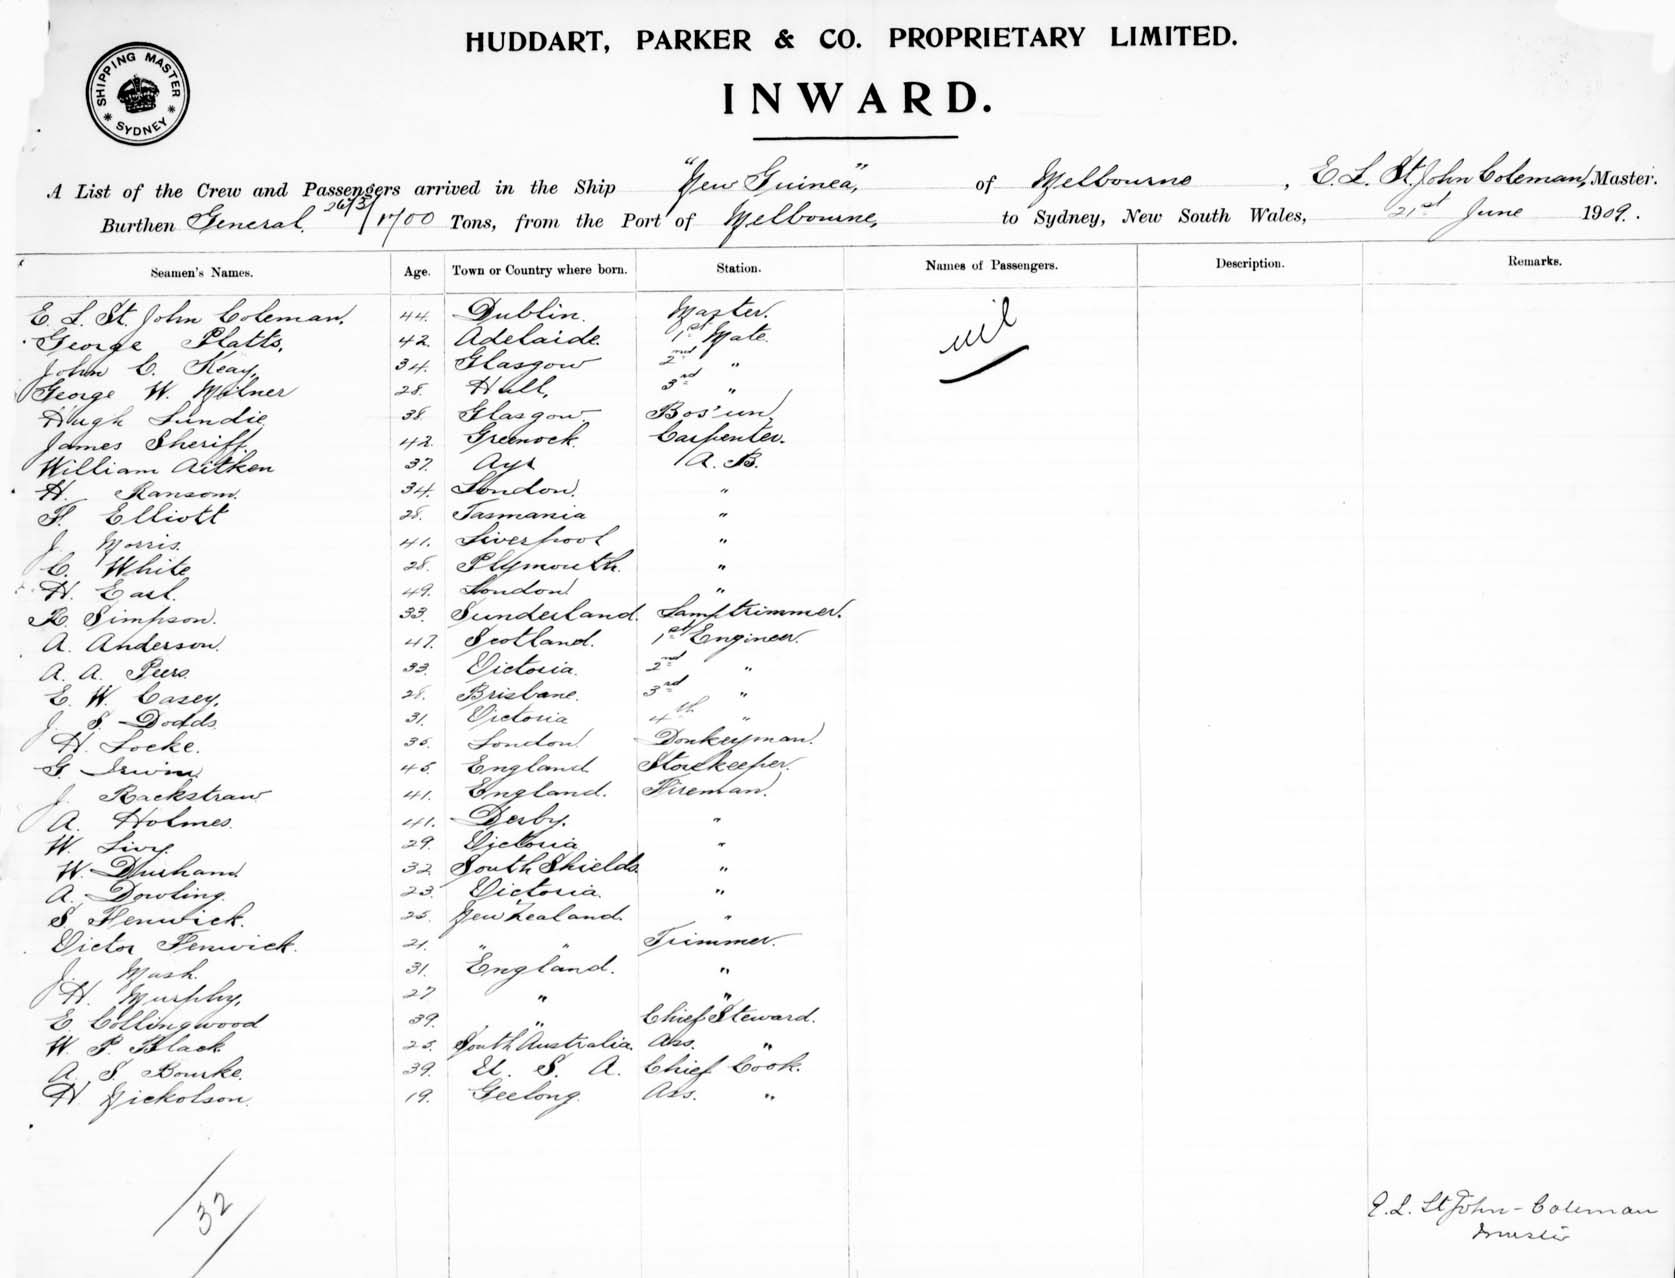 HUDDART, PARKER & CO. PROPRIETARY LIMITED.
SHIPPING MASTER SYDNEY
INWARD.
A List of the Crew and Passengers arrived in the Ship "New Guinea", of Melbourne, E. L. St. John Coleman, Master.
Burthen General. 2673/1700 Tons, from the Port of Melbourne, to Sydney, New South Wales, 21st June 1909.
Seamen's Names. Age. Town or Country where born. Station. Names of Passengers. Description. Remarks.
E. L. St. John Coleman. 44. Dublin. Master. nil
George Platts, 42. Adelaide. 1st Mate.
John C. Keay, 34. Glasgow 2nd "
George W. Milner 28. Hull, 3rd "
Hugh Lundie 38. Glasgow Bos'un.
James Sheriff. 42. Greenock. Carpenter.
William Aitken 37. Ayr A. B.
H. Ransom. 34. London. "
F. Elliott 28. Tasmania "
J. Morris. 41. Liverpool "
C. White 28. Plymouth. "
H. East. 49. London "
R. Simpson. 33. Sunderland. Lamptrimmer.
A. Anderson. 47. Scotland. 1st Engineer.
A. A. Peers. 33. Victoria. 2nd "
E. W. Casey. 28. Brisbane. 3rd "
J. S. Dodds 31. Victoria 4th "
H. Locke. 35. London. Donkeyman.
G. Irwin 45. England Storekeeper.
J. Rackstraw 41. England. Fireman.
A. Holmes. 41. Derby. "
W. Livy. 29. Victoria "
W. Durham 32. South Shields. "
A. Dowling. 23. Victoria. "
S. Fenwick. 25. New Zealand. "
Victor Fenwick. 21. " " Trimmer.
J. Mash. 31. England. "
H. Murphy, 27 " "
E. Collingwood 39. " Chief Steward.
W. P. Black 25. South Australia. Ass. "
A. S. Bourke. 39. U. S. A. Chief Cook.
H. Nickolson. 19. Geelong. Ass. "
32
E. L. St John-Coleman
Master